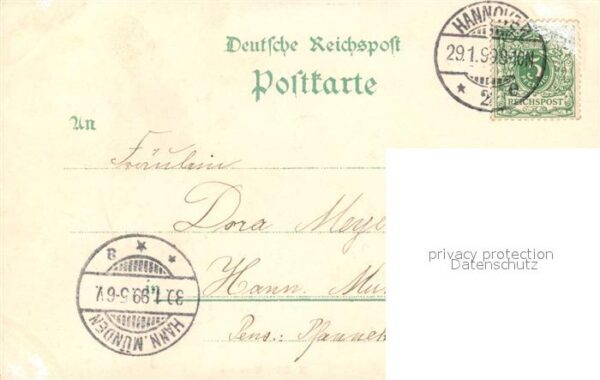 HANNOVER
29.1.99.9-10N.
* 2 e
5
REICHSPOST
Deutsche Reichspost
Postkarte
An
Fräulein
Dora Meye
in
Hann. Mü
Pens.: Pfanne
HANN. MÜNDEN
30.1.99.5-6V.
* * a
privacy protection
Datenschutz